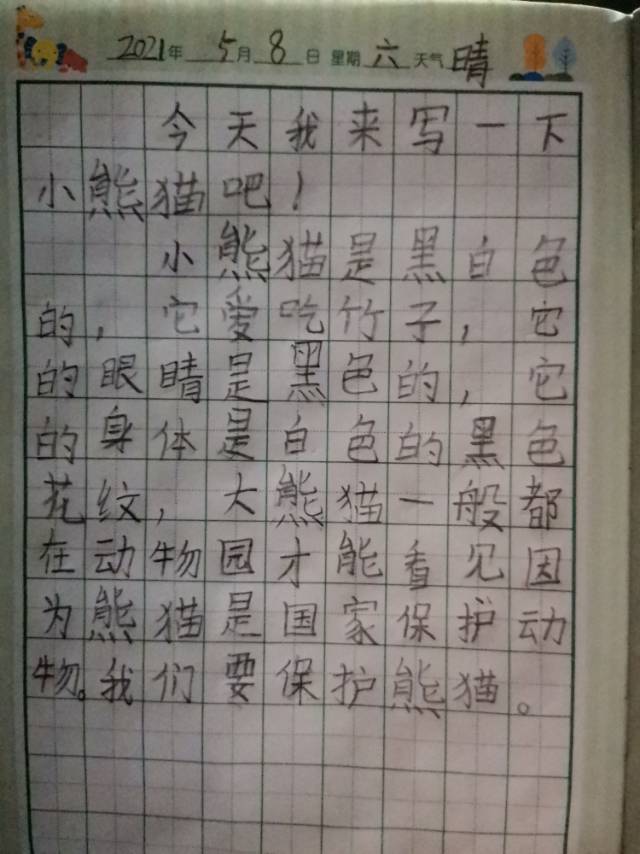 2021年 5月 8日 星期 六 天气 晴
今天我来写一下
小熊猫吧！
小熊猫是黑白色
的，它爱吃竹子，它
的眼睛是黑色的，它
的身体是白色的黑色
花纹，大熊猫一般都
在动物园才能看见因
为熊猫是国家保护动
物。我们要保护熊猫。